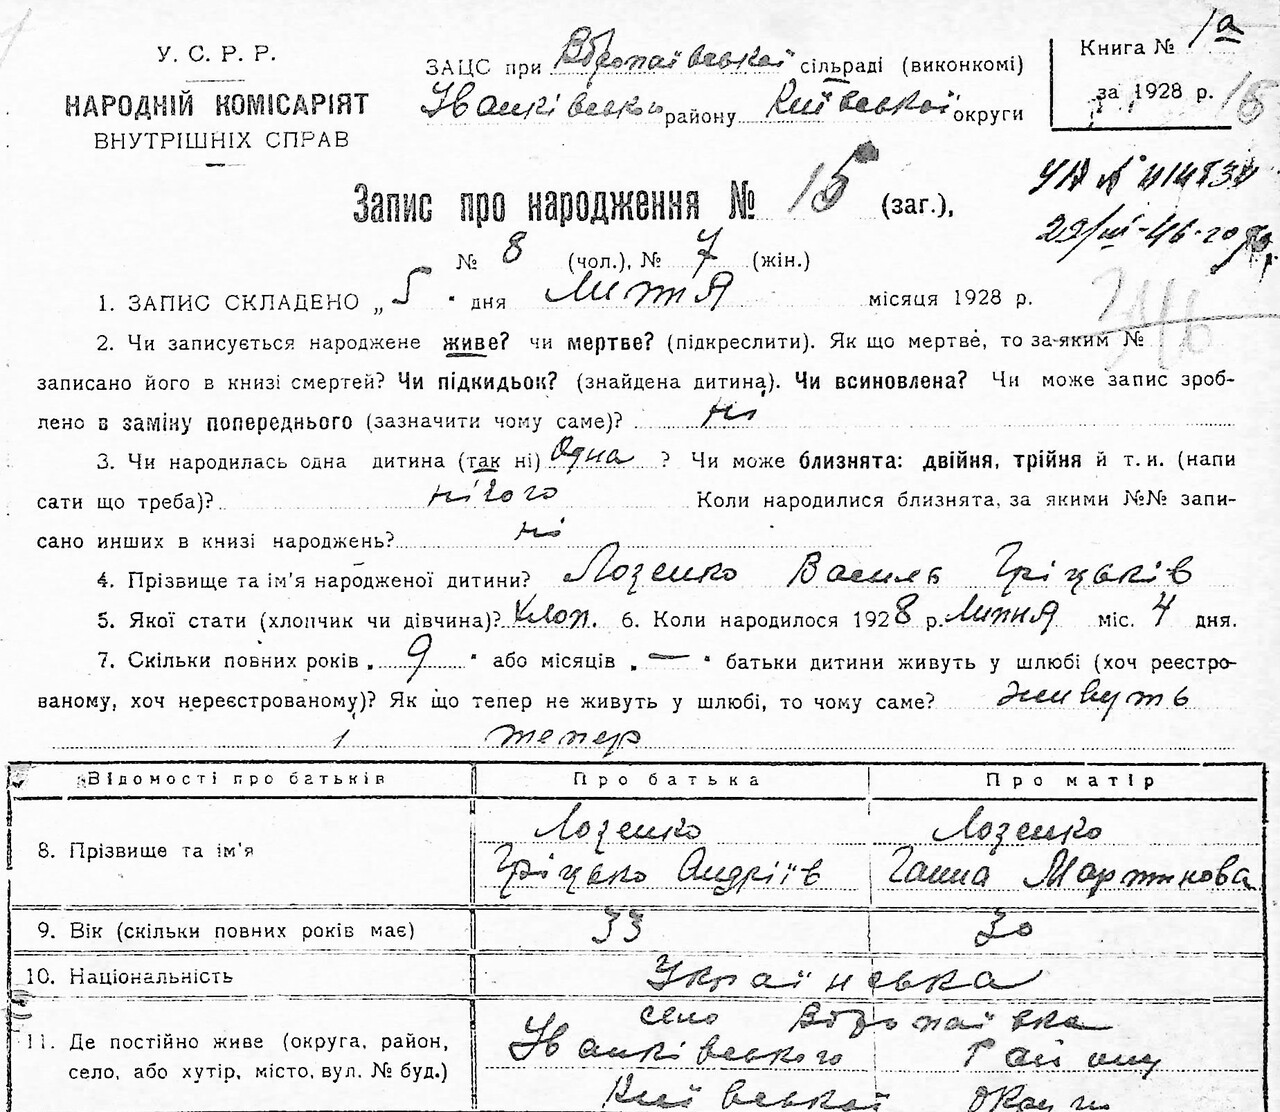 У. С. Р. Р.
НАРОДНІЙ КОМІСАРІЯТ
ВНУТРІШНІХ СПРАВ
ЗАЦС при Воропаївської сільраді (виконкомі)
Іванківсько району Київської округи
Книга № 1а
за 1928 р.
15
29/III-46-го
Запис про народження № 15 (заг.),
№ 8 (чол.), № 7 (жін.)
346
1. ЗАПИС СКЛАДЕНО „ 5 " дня Липня місяця 1928 р.
2. Чи записується народжене живе? чи мертве? (підкреслити). Як що мертве, то за-яким №
записано його в книзі смертей? Чи підкидьок? (знайдена дитина). Чи всиновлена? Чи може запис зроб-
лено в заміну попереднього (зазначити чому саме)? ні
3. Чи народилась одна дитина (так ні) Одна ? Чи може близнята: двійня, трійня й т. и. (напи
сати що треба)? нічого Коли народилися близнята, за якими №№ запи-
сано инших в книзі народжень? ні
4. Прізвище та ім'я народженої дитини? Лозенко Василь Гріцьків
5. Якої стати (хлопчик чи дівчина)? Хлоп. 6. Коли народилося 1928 р. Липня міс. 4 дня.
7. Скільки повних років „ 9 " або місяців „ — " батьки дитини живуть у шлюбі (хоч реестро-
ваному, хоч нереєстрованому)? Як що тепер не живуть у шлюбі, то чому саме? живуть
тепер
Відомості про батьків Про батька Про матір
8. Прізвище та ім'я
Лозенко Лозенко
Гріцько Андріїв Ганна Мартинова
9. Вік (скільки повних років має) 33 30
10. Національність Українська
11. Де постійно живе (округа, район,
село, або хутір, місто, вул. № буд.)
село Воропаївка
Іванківського Району
Київської округи